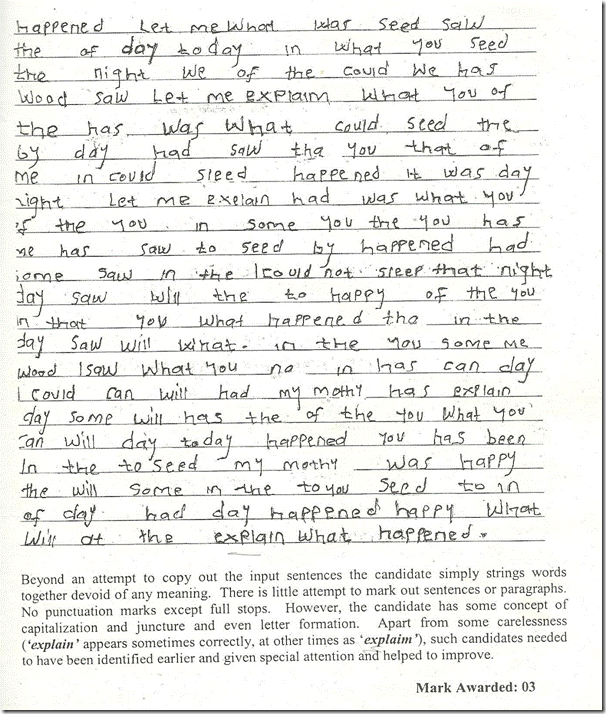 happened Let me What was seed saw
the of day today in what you seed
the night we of the could we has
wood saw Let me explaim what you of
the has was what could seed the
by day had saw tha you that of
me in could sleed happened it was day
night Let me exelain had was what you
if the you in some you the you has
me has saw to seed by happened had
some saw in the I could not sleep that night
day saw will the to happy of the you
in that you what happened tha in the
day saw will what. in the you some me
wood I saw what you no in has can day
I could can will had my mothy has explain
day some will has the of the you what you
can will day today happened you has been
In the to seed my mothy was happy
the will some in the to you seed to in
of day had day happened happy what
will at the explain what happened.
Beyond an attempt to copy out the input sentences the candidate simply strings words
together devoid of any meaning. There is little attempt to mark out sentences or paragraphs.
No punctuation marks except full stops. However, the candidate has some concept of
capitalization and juncture and even letter formation. Apart from some carelessness
(‘explain’ appears sometimes correctly, at other times as ‘explaim’), such candidates needed
to have been identified earlier and given special attention and helped to improve.
Mark Awarded: 03